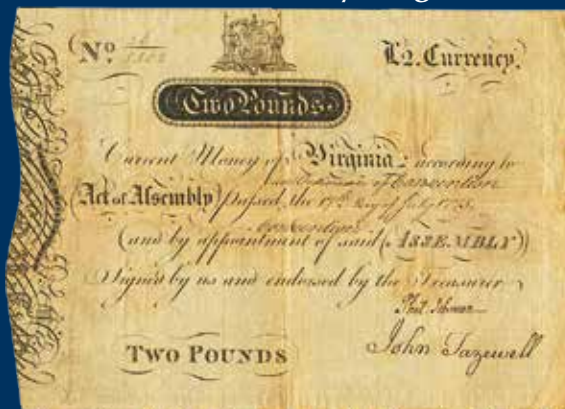 No.
£2. Currency.
Two Pounds
Current Money of Virginia according to
Ordinance of Convention
Act of Assembly passed the 17th Day of July 1775,
Convention
(and by appointment of said (ASSEMBLY))
Signed by us and endorsed by the Treasurer
Phil. Johnson
John Tazewell
TWO POUNDS